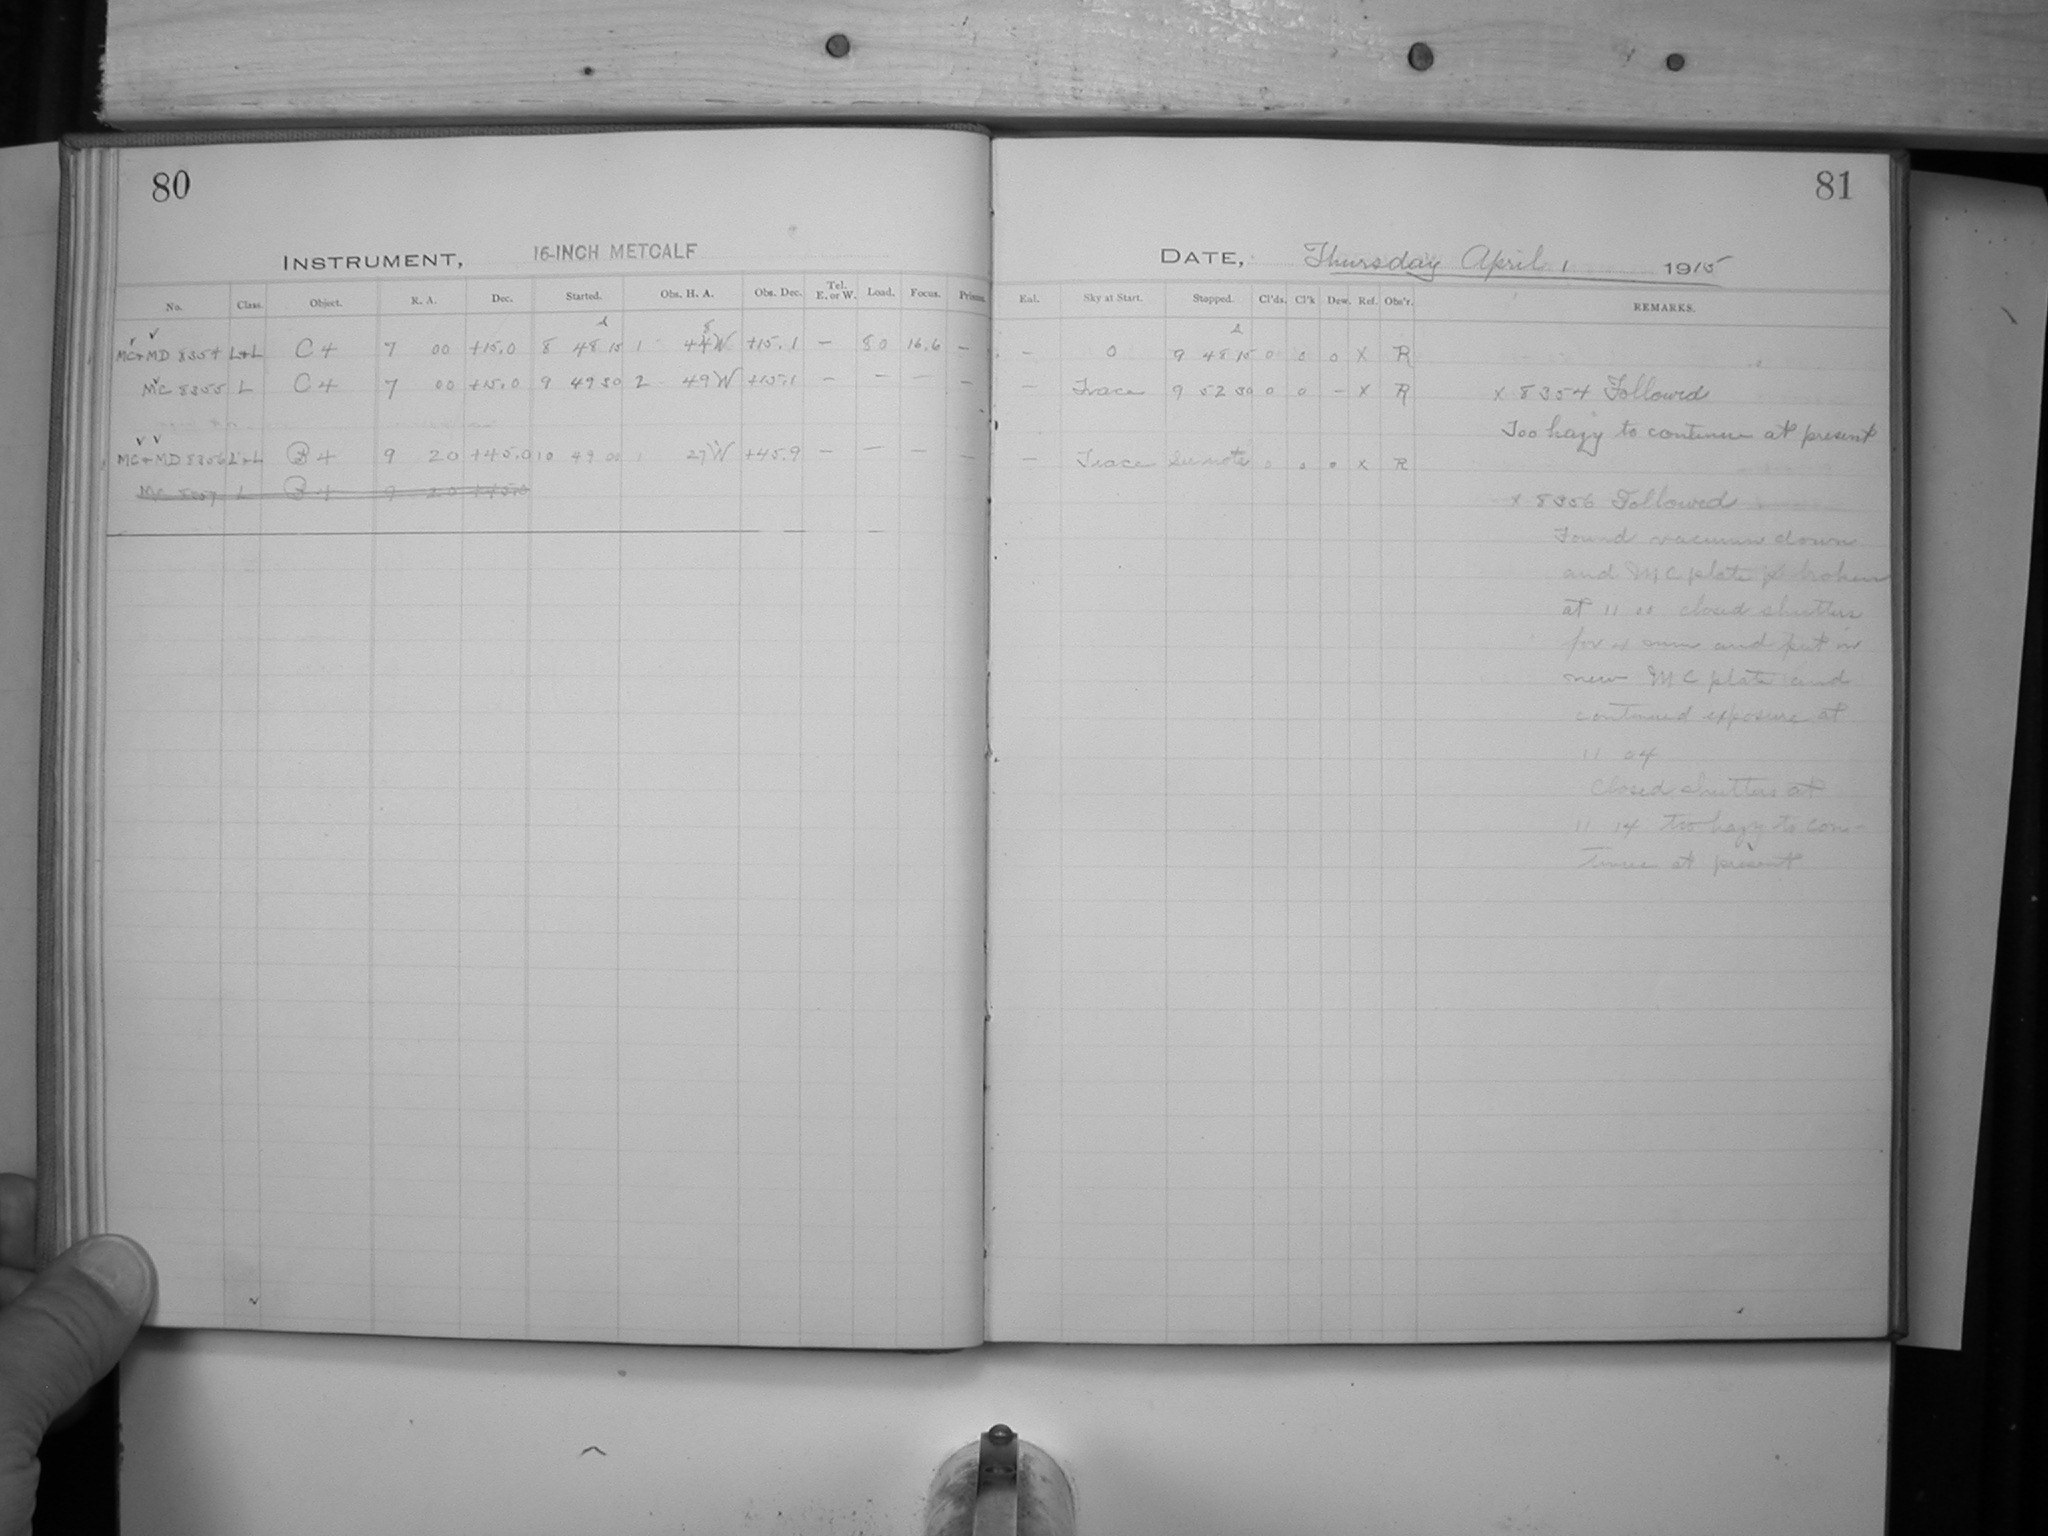 80
INSTRUMENT, 16-INCH METCALF
No. Class. Object. R. A. Dec. Started. Obs. H. A. Obs. Dec. Tel. E. or W. Load. Focus. Prisms.
MC+MD 8354 L+L C 4 7 00 +15.0 8 48 15 1 W +15.1 — 80 16.6 —
MC 8355 L C 4 7 00 +15.0 9 49 30 2 49 W +15.1 — — — —
MC+MD 8356 L+L B 4 9 20 +45.0 10 49 00 1 27 W +45.9 — — — —
MC 8357 L B 4 9 20 +45.0
81
DATE, Thursday April 1 1915
Enl. Sky at Start. Stopped. Cl'ds. Cl'k Dew. Ref. Obs'r. REMARKS.
— 0 9 48 15 0 0 0 X R
— Trace 9 52 30 0 0 — X R x 8354 Followed
Too hazy to continue at present
— Trace See note 0 0 0 X R
x 8356 Followed
Found vacuum down
and MC plate broken
at 11 00 closed shutters
for 4 min and put in
new MC plate and
continued exposure at
11 04
Closed shutters at
11 14 too hazy to con-
tinue at present